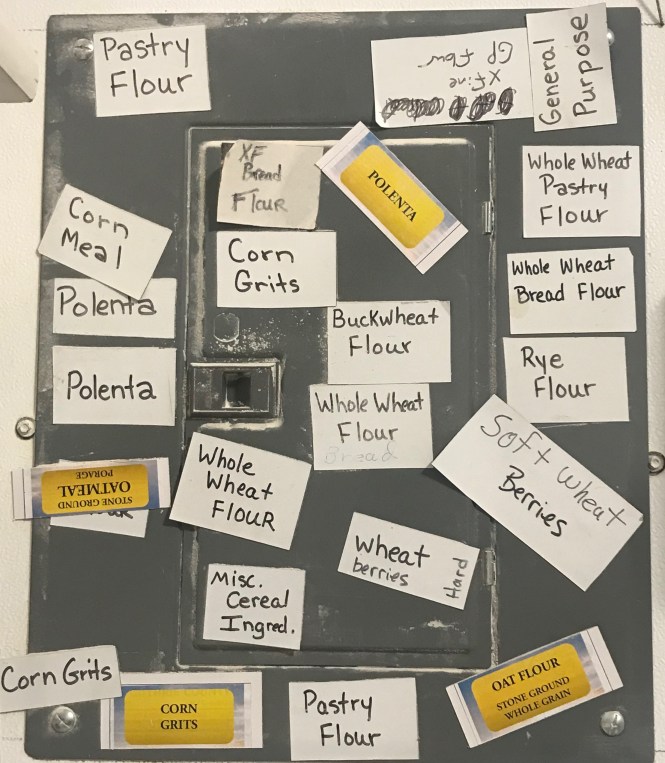 Pastry
Flour
GP flour
XFine
General
Purpose
XF
Bread
Flour
POLENTA
Whole Wheat
Pastry
Flour
Corn
Meal
Corn
Grits
Whole Wheat
Bread Flour
Polenta
Buckwheat
Flour
Rye
Flour
Polenta
Whole Wheat
Flour
Bread
Soft wheat
Berries
STONE GROUND
OATMEAL
PORAGE
Whole
Wheat
FlouR
Wheat
berries
Hard
Misc.
Cereal
Ingred.
Corn Grits
CORN
GRITS
Pastry
Flour
OAT FLOUR
STONE GROUND
WHOLE GRAIN